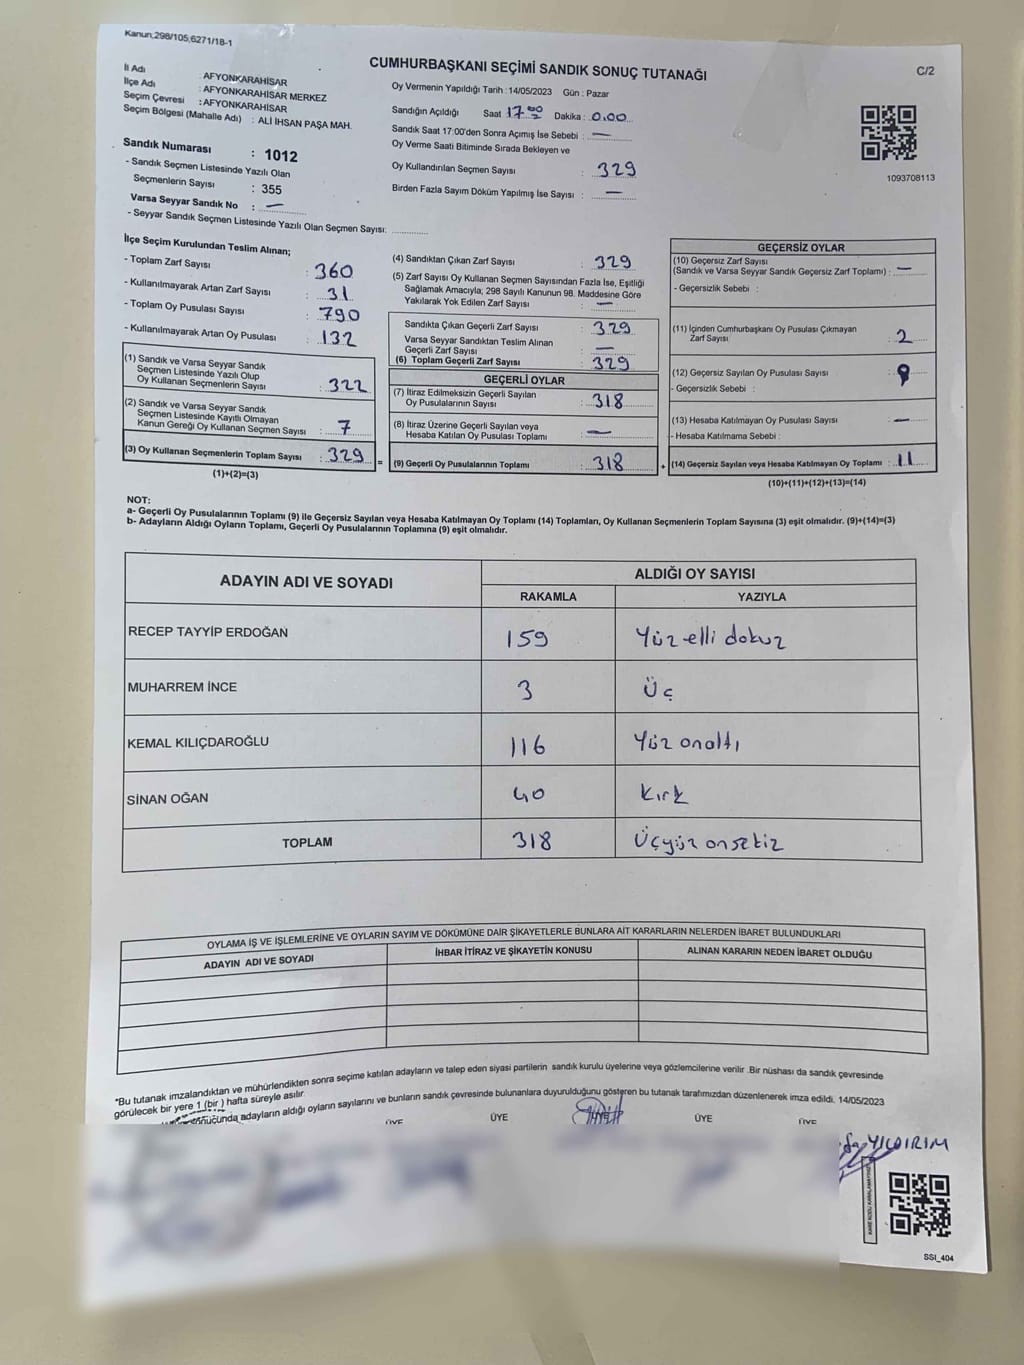 Kanun;298/105,6271/18-1
CUMHURBAŞKANI SEÇİMİ SANDIK SONUÇ TUTANAĞI
C/2
İl Adı : AFYONKARAHİSAR
İlçe Adı : AFYONKARAHİSAR MERKEZ
Seçim Çevresi : AFYONKARAHİSAR
Seçim Bölgesi (Mahalle Adı) : ALİ İHSAN PAŞA MAH.
Oy Vermenin Yapıldığı Tarih : 14/05/2023 Gün : Pazar
Sandığın Açıldığı Saat 17.00 Dakika : 0.00
Sandık Saat 17:00'den Sonra Açımış İse Sebebi : —
Oy Verme Saati Bitiminde Sırada Bekleyen ve
Oy Kullandırılan Seçmen Sayısı : 329
Birden Fazla Sayım Döküm Yapılmış İse Sayısı : —
1093708113
Sandık Numarası : 1012
- Sandık Seçmen Listesinde Yazılı Olan
Seçmenlerin Sayısı : 355
Varsa Seyyar Sandık No : —
- Seyyar Sandık Seçmen Listesinde Yazılı Olan Seçmen Sayısı:
İlçe Seçim Kurulundan Teslim Alınan;
- Toplam Zarf Sayısı : 360
- Kullanılmayarak Artan Zarf Sayısı : 31
- Toplam Oy Pusulası Sayısı : 790
- Kullanılmayarak Artan Oy Pusulası : 132
(1) Sandık ve Varsa Seyyar Sandık
Seçmen Listesinde Yazılı Olup
Oy Kullanan Seçmenlerin Sayısı : 322
(2) Sandık ve Varsa Seyyar Sandık
Seçmen Listesinde Kayıtlı Olmayan
Kanun Gereği Oy Kullanan Seçmen Sayısı : 7
(3) Oy Kullanan Seçmenlerin Toplam Sayısı : 329 =
(1)+(2)=(3)
(4) Sandıktan Çıkan Zarf Sayısı : 329
(5) Zarf Sayısı Oy Kullanan Seçmen Sayısından Fazla İse, Eşitliği
Sağlamak Amacıyla; 298 Sayılı Kanunun 98. Maddesine Göre
Yakılarak Yok Edilen Zarf Sayısı : —
Sandıkta Çıkan Geçerli Zarf Sayısı : 329
Varsa Seyyar Sandıktan Teslim Alınan
Geçerli Zarf Sayısı : —
(6) Toplam Geçerli Zarf Sayısı : 329
GEÇERLİ OYLAR
(7) İtiraz Edilmeksizin Geçerli Sayılan
Oy Pusulalarının Sayısı : 318
(8) İtiraz Üzerine Geçerli Sayılan veya
Hesaba Katılan Oy Pusulası Toplamı : —
(9) Geçerli Oy Pusulalarının Toplamı : 318 +
GEÇERSİZ OYLAR
(10) Geçersiz Zarf Sayısı
(Sandık ve Varsa Seyyar Sandık Geçersiz Zarf Toplamı) : —
- Geçersizlik Sebebi :
(11) İçinden Cumhurbaşkanı Oy Pusulası Çıkmayan
Zarf Sayısı : 2
(12) Geçersiz Sayılan Oy Pusulası Sayısı : 9
- Geçersizlik Sebebi :
(13) Hesaba Katılmayan Oy Pusulası Sayısı : —
- Hesaba Katılmama Sebebi :
(14) Geçersiz Sayılan veya Hesaba Katılmayan Oy Toplamı : 11
(10)+(11)+(12)+(13)=(14)
NOT:
a- Geçerli Oy Pusulalarının Toplamı (9) ile Geçersiz Sayılan veya Hesaba Katılmayan Oy Toplamı (14) Toplamları, Oy Kullanan Seçmenlerin Toplam Sayısına (3) eşit olmalıdır. (9)+(14)=(3)
b- Adayların Aldığı Oyların Toplamı, Geçerli Oy Pusulalarının Toplamına (9) eşit olmalıdır.
ADAYIN ADI VE SOYADI ALDIĞI OY SAYISI
RAKAMLA YAZIYLA
RECEP TAYYİP ERDOĞAN 159 Yüz elli dokuz
MUHARREM İNCE 3 Üç
KEMAL KILIÇDAROĞLU 116 Yüz onaltı
SİNAN OĞAN 40 Kırk
TOPLAM 318 Üçyüz onsekiz
OYLAMA İŞ VE İŞLEMLERİNE VE OYLARIN SAYIM VE DÖKÜMÜNE DAİR ŞİKAYETLERLE BUNLARA AİT KARARLARIN NELERDEN İBARET BULUNDUKLARI
ADAYIN ADI VE SOYADI İHBAR İTİRAZ VE ŞİKAYETİN KONUSU ALINAN KARARIN NEDEN İBARET OLDUĞU
*Bu tutanak imzalandıktan ve mühürlendikten sonra seçime katılan adayların ve talep eden siyasi partilerin sandık kurulu üyelerine veya gözlemcilerine verilir .Bir nüshası da sandık çevresinde
görülecek bir yere 1 (bir ) hafta süreyle asılır.
adayların aldığı oyların sayılarını ve bunların sandık çevresinde bulunanlara duyurulduğunu gösteren bu tutanak tarafımızdan düzenlenerek imza edildi. 14/05/2023
ÜYE ÜYE ÜYE ÜYE ÜYE
YILDIRIM
SSI_404